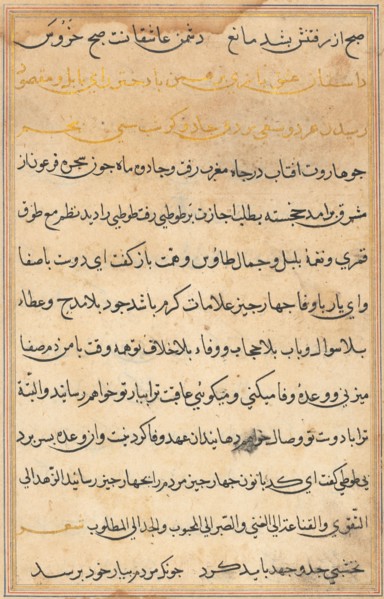 صبح از رفتنش بند مانع دشمن عاشقانست صبح خروس
داستان عشق بازی برهمن با دختر رای بابل و مقصود
رسیدن هر دو بسعی مردی جادوگر شب سی پنجم
چو هاروت افتاب در چاه مغرب رفت و جادوء ماه چون سحره فرعون از
مشرق برامد خجسته بطلب اجازت بر طوطی رفت طوطی را دید مع طوق
قمری و نغمهٔ بلبل و جمال طاؤس و همت باز کفت ای دوست باصفا
و ای یار باوفا چهار چیز علامات کرم باشد جود بلا مدح و عطاء
بلا سوال و باب بلا حجاب و وفاء بلا خلاف تو همه وقت با من دم صفا
میزنی و وعدهٔ وفا میکنی و میکوئی عاقبت ترا بیار تو خواهم رسانید و البتّة
ترا با دوت تو وصال خواهم دهانیدن عهد وفا کردنیت و از وعده بسر برد
نی طوطی کفت ای کدبانو چهار چیز مردم را بچهار چیز رسانید الزهد الی
التقوی و القناعة الی الغنی و الصبر الی المحبوب و الجد الی المطلوب شعر
نخشبی جد و جهد باید کرد چونکه مردم بیار خود برسد